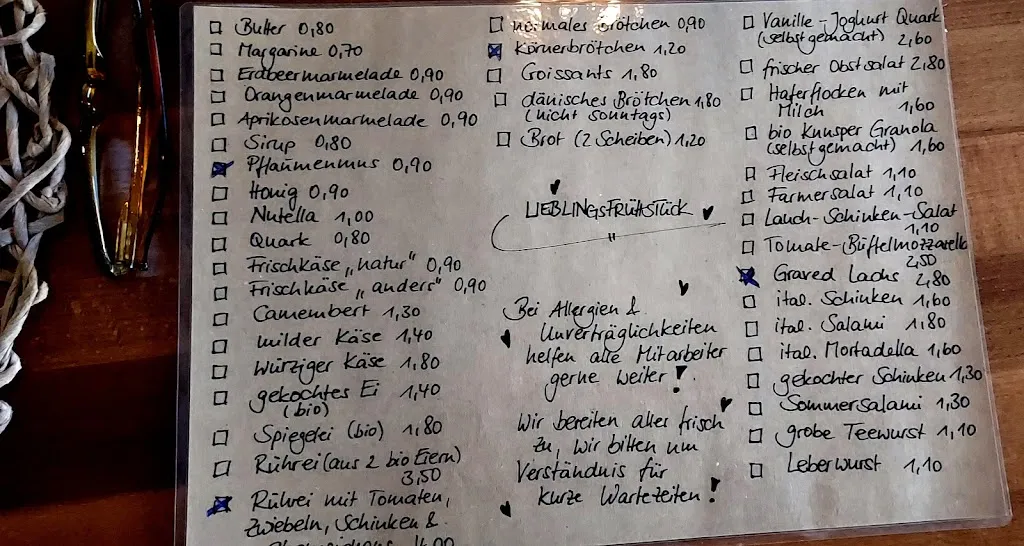 Butter 0,80
Margarine 0,70
Erdbeermarmelade 0,90
Orangenmarmelade 0,90
Aprikosenmarmelade 0,90
Sirup 0,80
Pflaumenmus 0,90
Honig 0,90
Nutella 1,00
Quark 0,80
Frischkäse „natur" 0,90
Frischkäse „anders" 0,90
Camembert 1,30
milder Käse 1,40
würziger Käse 1,80
gekochtes Ei 1,40
(bio)
Spiegelei (bio) 1,80
Rührei (aus 2 bio Eiern)
3,50
Rührei mit Tomaten,
Zwiebeln, Schinken &
4,00
normales Brötchen 0,90
Körnerbrötchen 1,20
Croissants 1,80
dänisches Brötchen 1,80
(nicht sonntags)
Brot (2 Scheiben) 1,20
LIEBLINGSFRÜHSTÜCK
Bei Allergien &
Unverträglichkeiten
helfen alle Mitarbeiter
gerne weiter!
Wir bereiten alles frisch
zu, wir bitten um
Verständnis für
kurze Wartezeiten!
Vanille-Joghurt Quark
(selbstgemacht) 2,60
frischer Obstsalat 2,80
Haferflocken mit
Milch 1,60
bio Knusper Granola
(selbstgemacht) 1,60
Fleischsalat 1,10
Farmersalat 1,10
Lauch-Schinken-Salat
1,10
Tomate-Büffelmozzarella
2,50
Graved Lachs 2,80
ital. Schinken 1,60
ital. Salami 1,80
ital. Mortadella 1,60
gekochter Schinken 1,30
Sommersalami 1,30
grobe Teewurst 1,10
Leberwurst 1,10